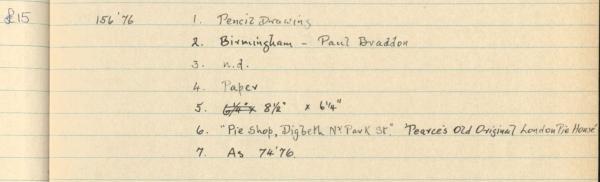 £15 156'76 1. Pencil Drawing
2. Birmingham - Paul Braddon
3. n.d.
4. Paper
5. 6¼" x 8½" x 6¼"
6. "Pie Shop, Digbeth Nr Park St." 'Pearce's Old Original London Pie House'
7. As 74'76.